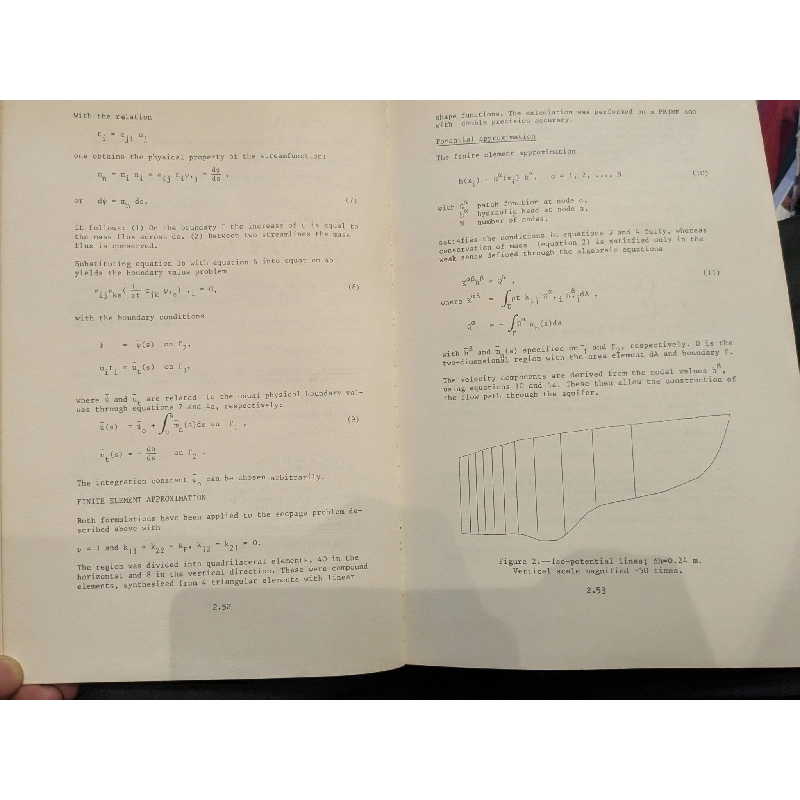 With the relation
n_i = e_ji n_j
one obtains the physical property of the streamfunction:
m_n = m_i n_i = e_ij n_i ψ,_j = dψ/ds ,
or dψ = m_n ds. (7)
It follows: (1) On the boundary Γ the increase of ψ is equal to
the mass flux across ds. (2) Between two streamlines the mass
flux is conserved.
Substituting equation 3b with equation 6 into equation 4b
yields the boundary value problem
= 0, (8)
with the boundary conditions
ψ = ψ̄(s) on Γ₂,
= ū_t(s) on Γ₁,
where ψ̄ and ū_t are related to the usual physical boundary val-
ues through equations 7 and 4a, respectively:
(9)
ū_t(s) = - dh/ds on Γ₂ .
The integration constant ψ̄_o can be chosen arbitrarily.
FINITE ELEMENT APPROXIMATION
Both formulations have been applied to the seepage problem de-
scribed above with
ρ = 1 and k₁₁ = k₂₂ = k_F, k₁₂ = k₂₁ = 0.
The region was divided into quadrilateral elements, 40 in the
horizontal and 8 in the vertical direction. These were compound
elements, synthesized from 4 triangular elements with linear
2.52
shape functions. The calculation was performed on a PRIME 400
with double precision accuracy.
Potential approximation
The finite element approximation
α = 1, 2, ..., N (10)
with patch function at node α,
hydraulic head at node α,
N number of nodes,
satisfies the conditions in equations 3 and 4 fully, whereas
conservation of mass (equation 2) is satisfied only in the
weak sense defined through the algebraic equations
(11)
where
with and specified on Γ₁ and Γ₂, respectively. D is the
two-dimensional region with the area element dA and boundary Γ.
The velocity components are derived from the nodal values h^β,
using equations 10 and 4a. These then allow the construction of
the flow path through the aquifer.
Figure 2.--Iso-potential lines; Δh=0.24 m.
Vertical scale magnified ~50 times.
2.53